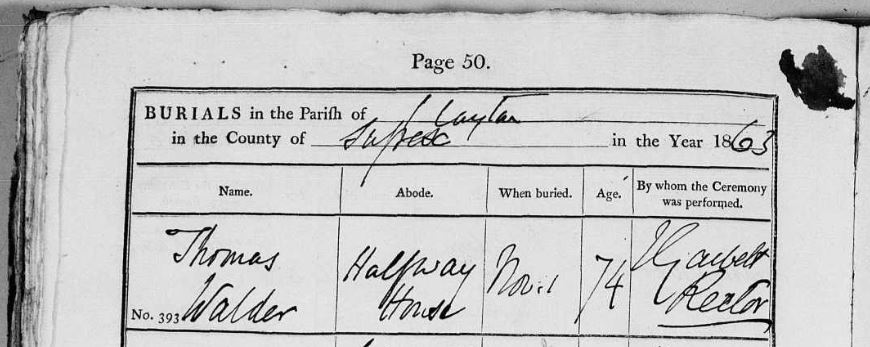 Page 50.
BURIALS in the Parish of Clayton
in the County of Sussex in the Year 1863
Name. Abode. When buried. Age. By whom the Ceremony was performed.
Thomas Halfway Novr 74
No. 393 Walder House Rector